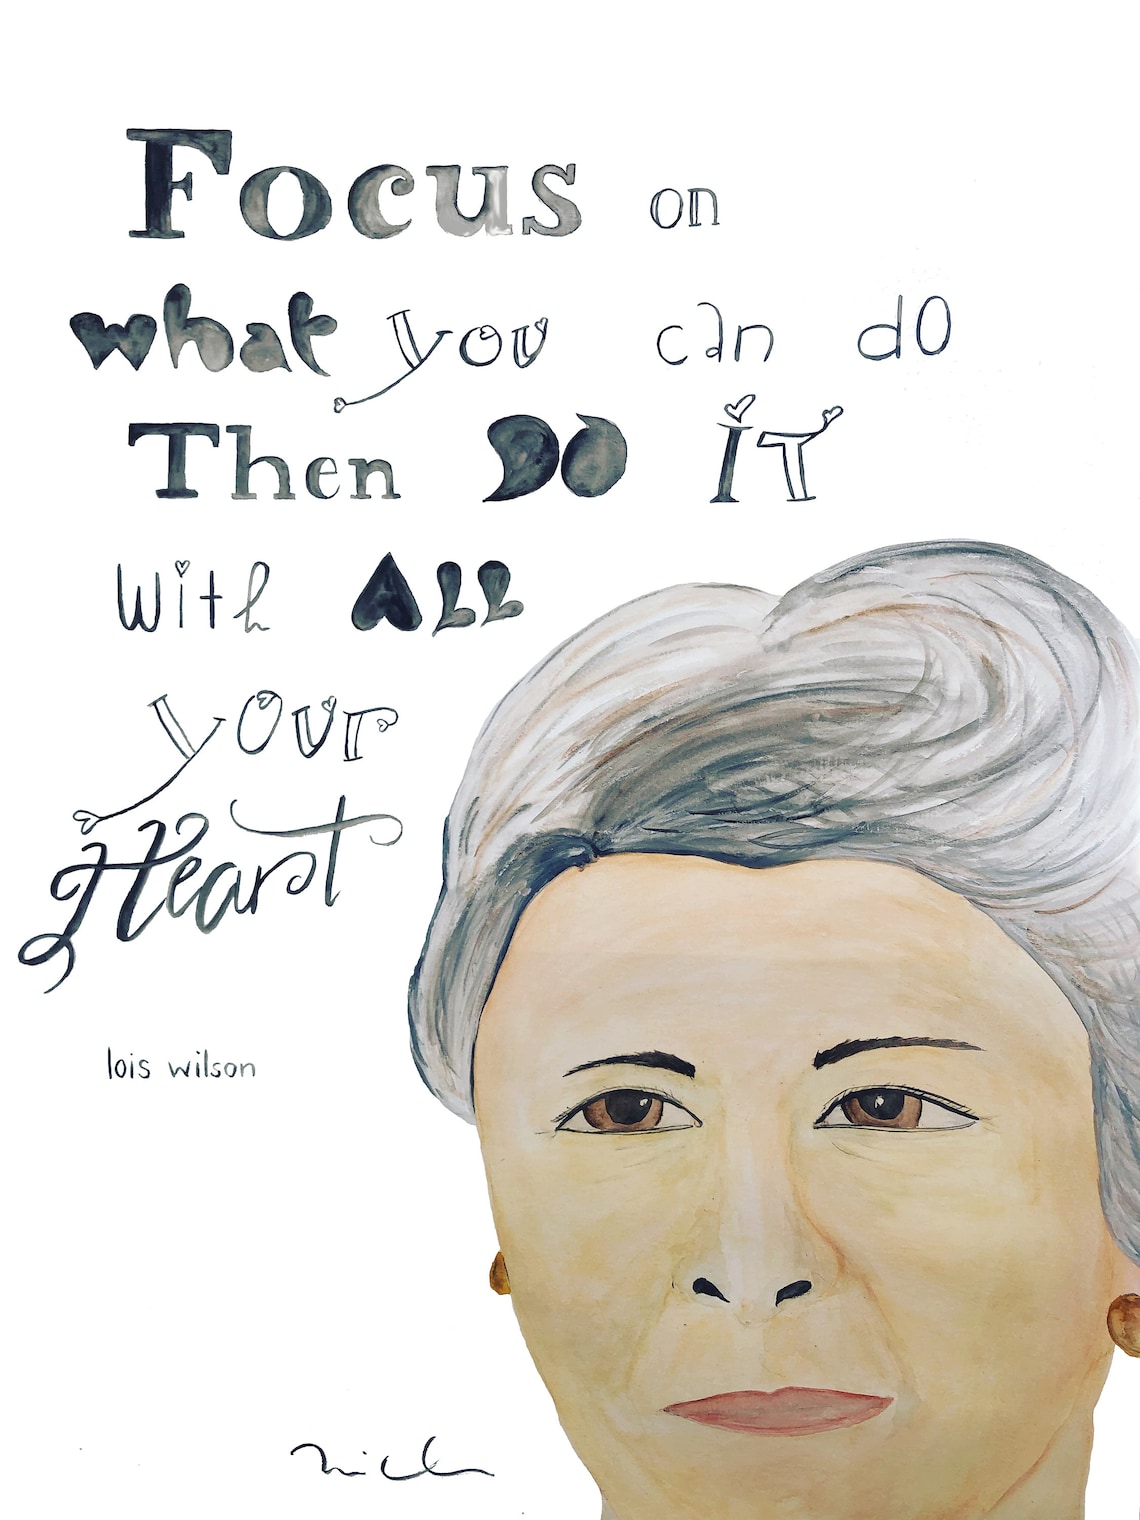 Focus on
what you can do
Then DO IT
With ALL
your
Heart
lois wilson